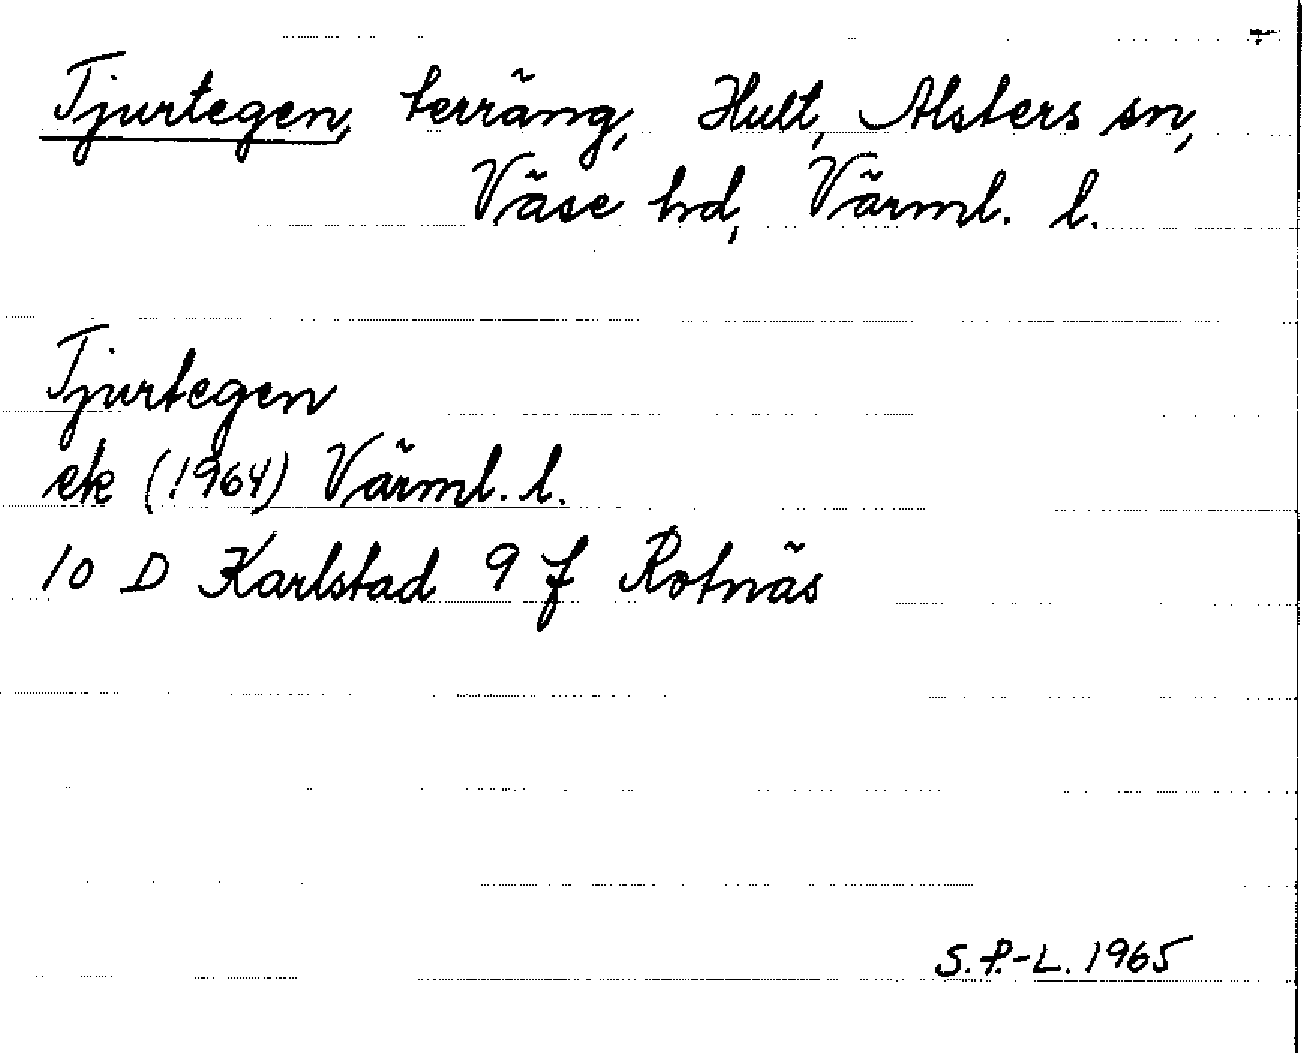 Tjurtegen, terräng, Hult, Alsters sn,
Väse hd, Värml. l.
Tjurtegen
ek (1964) Värml. l.
10 D Karlstad 9 f Rotnäs
S.P.-L. 1965